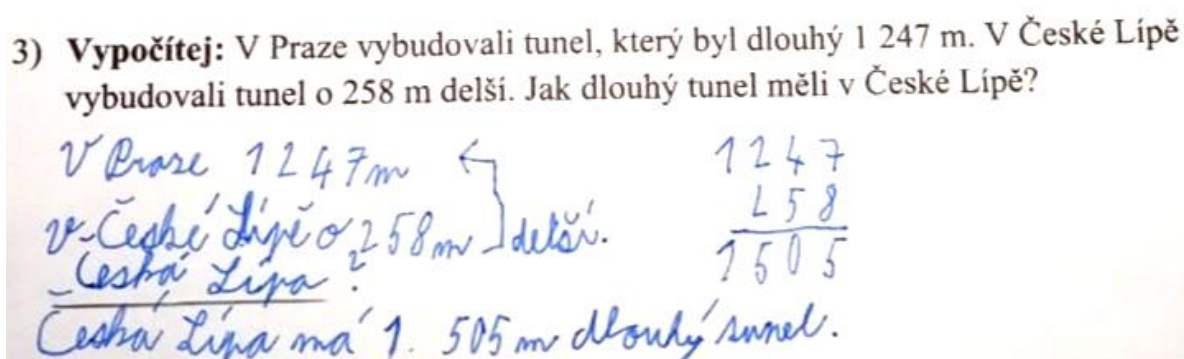 3) Vypočítej: V Praze vybudovali tunel, který byl dlouhý 1 247 m. V České Lípě
vybudovali tunel o 258 m delší. Jak dlouhý tunel měli v České Lípě?
V Praze 1247m
v České Lípě o 258m delší.
Česká Lípa ?
1247
258
1505
Česká Lípa má 1. 505 m dlouhý tunel.